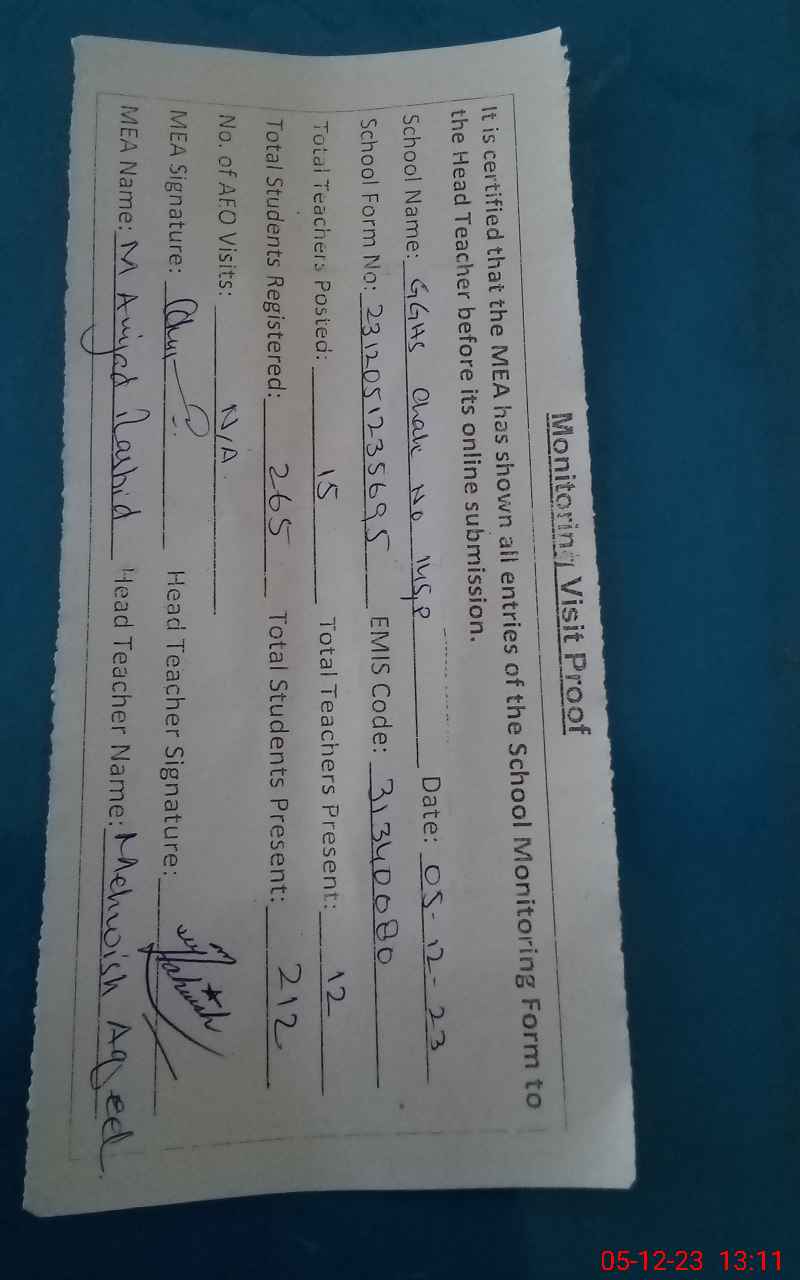 Monitoring Visit Proof
It is certified that the MEA has shown all entries of the School Monitoring Form to
the Head Teacher before its online submission.
School Name: GGHS Chak No 114S,P Date: 05-12-23
School Form No: 2312051235695 EMIS Code: 31340080
Total Teachers Posted: 15 Total Teachers Present: 12
Total Students Registered: 265 Total Students Present: 212
No. of AEO Visits: N/A
MEA Signature: Head Teacher Signature: Mahwish
MEA Name: M Amjad Rashid Head Teacher Name: Mehwish Aqeel
05-12-23 13:11